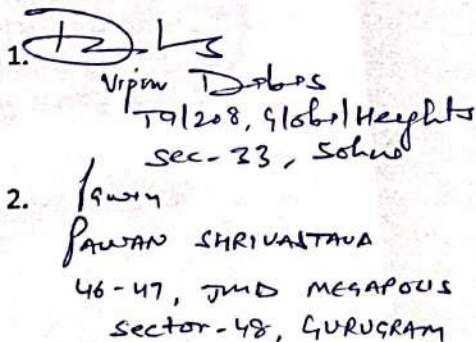 1.
Vipin Dabas
T9/208, Global Heights
Sec-33, Sohna
2. Pawan
PAWAN SHRIVASTAVA
46-47, JMD MEGAPOLIS
Sector-48, GURUGRAM